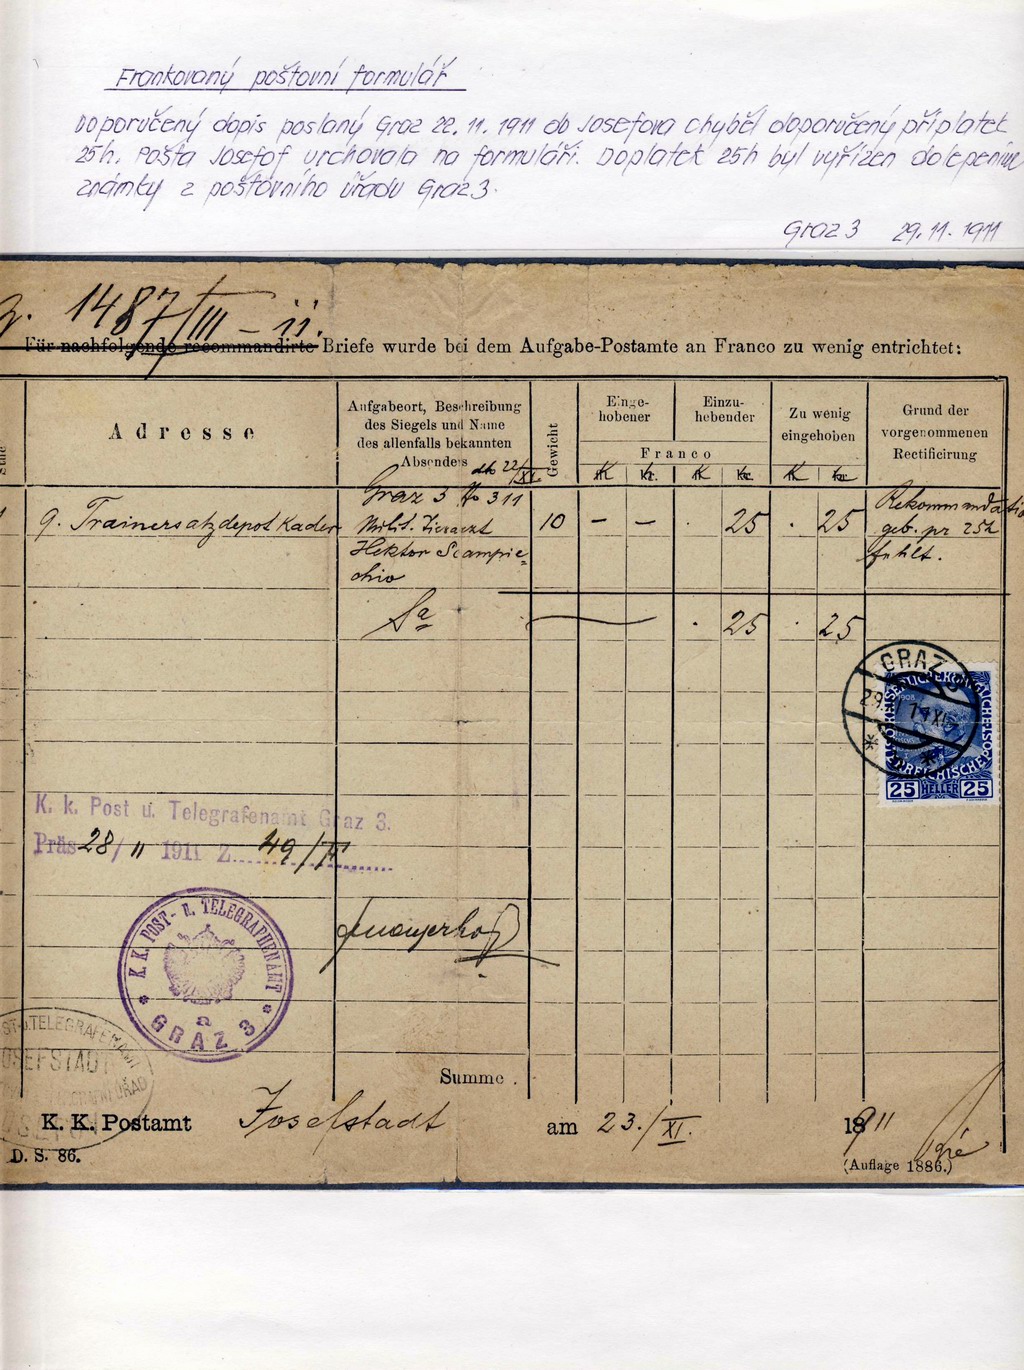 Frankovaný poštovní formulář
Doporučený dopis poslaný Graz 22.11.1911 do Josefova chyběl doporučený příplatek
25h. Pošta Josefof vrchovala na formuláři. Doplatek 25h byl vyřízen dolepením
známky z poštovního úřadu Graz 3.
Graz 3 29.11.1911
1487/III - 11.
Für nachfolgende recommandirte Briefe wurde bei dem Aufgabe-Postamte an Franco zu wenig entrichtet:
Adresse
Aufgabeort, Beschreibung
des Siegels und Name
des allenfalls bekannten
Absenders
22/XI.
Gewicht
Einge-
hobener
Einzu-
hebender
Franco
K kr. K kr.
Zu wenig
eingehoben
K kr.
Grund der
vorgenommenen
Rectificirung
9. Trainersatzdepot Kader
Graz 3 No 311
Milit. Tierarzt
Hektor Scampic-
chio
10 - - . 25 . 25
Rekommandatio
geb. pr 25h
fehlt.
Sa . 25 . 25
GRAZ
29. XI 11
1908
25 HELLER 25
K. k. Post u. Telegrafenamt Graz 3.
Präs 28/11 1911 Z. 49/
K. K. POST- u. TELEGRAPHENAMT
a
* GRAZ 3 *
ST- u. TELEGRAFENAMT
JOSEFSTADT
ÚŘAD
Summe .
K. K. Postamt Josefstadt am 23./XI. 1911
D. S. 86.
(Auflage 1886.)